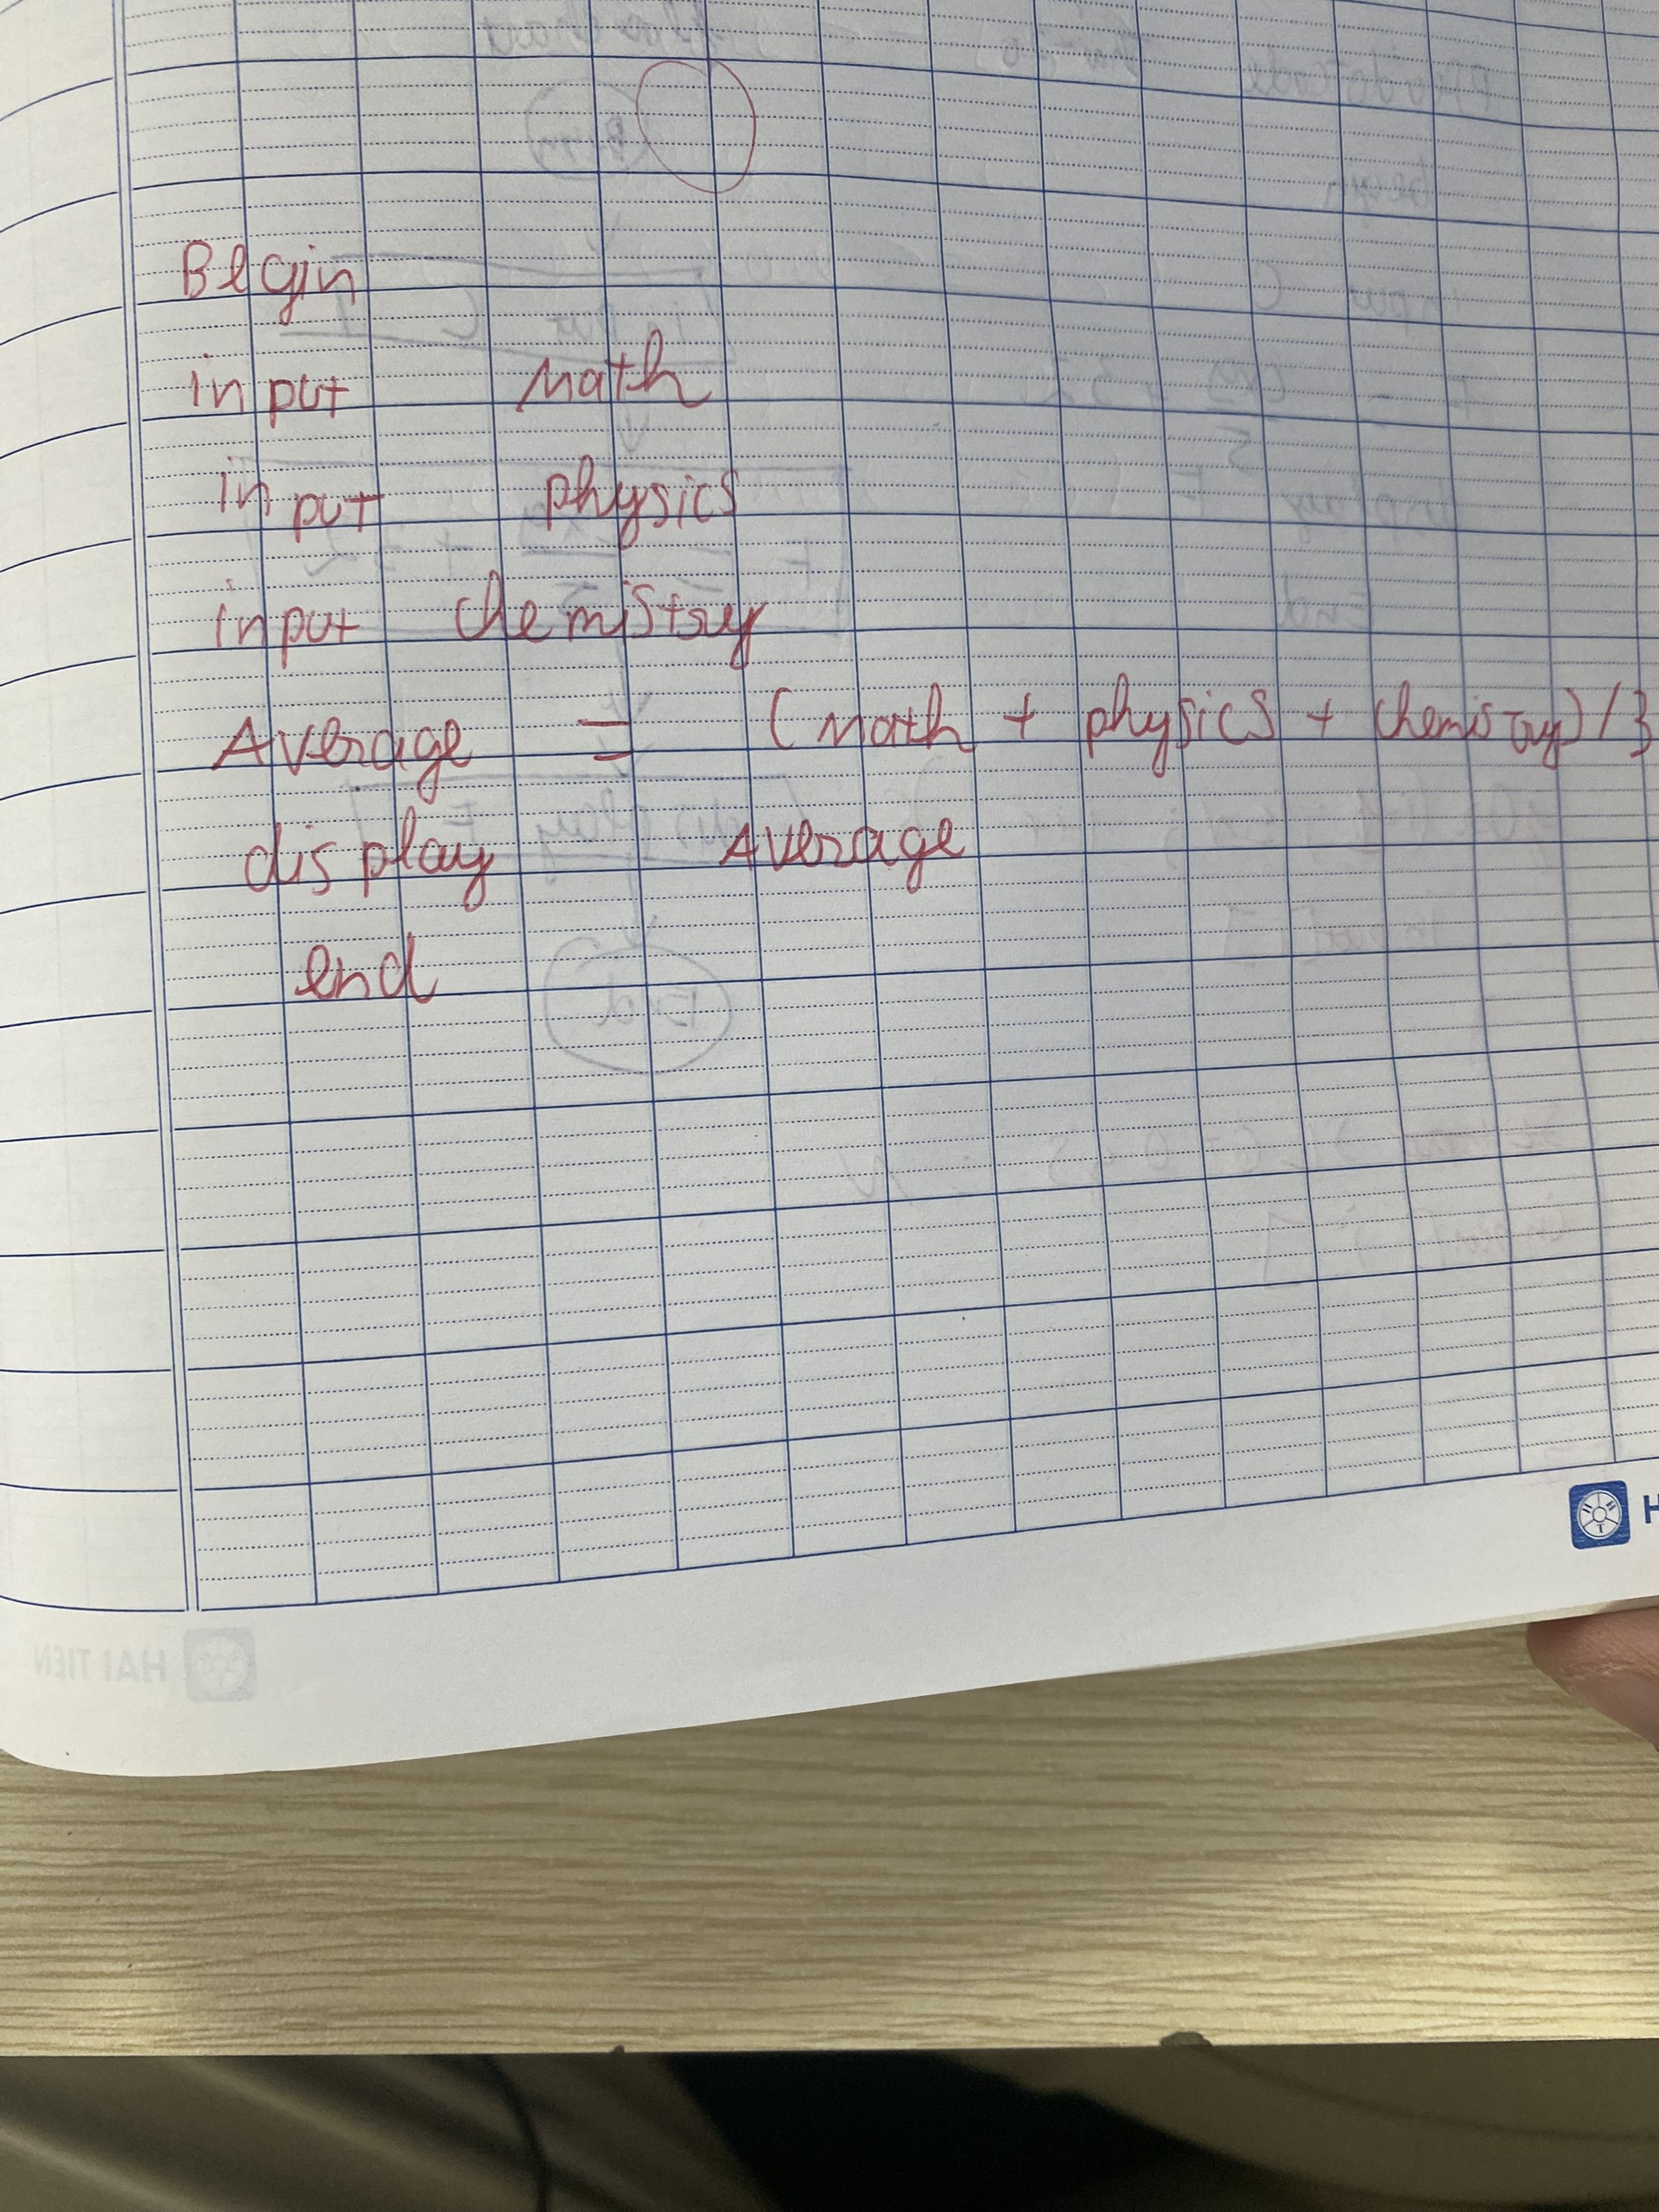 Begin
input Math
input physics
input chemistry
Average = (Math + physics + chemistry) / 3
display Average
end
H
HAI TIEN